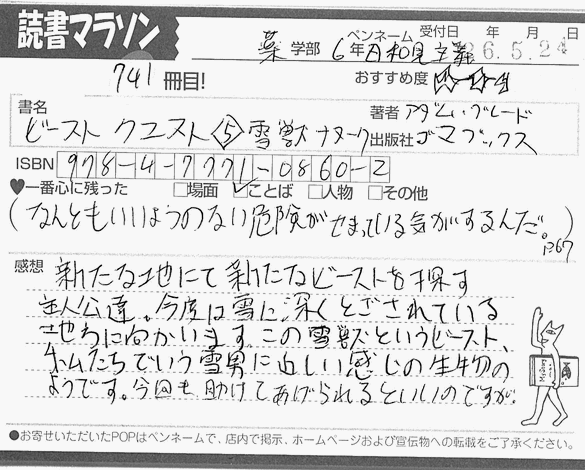 読書マラソン
受付日 年 月 日
薬 学部 6年 ペンネーム 日和見主義
26.5.24
741冊目!
おすすめ度
書名
ビーストクエスト⑤雪獣ナヌーク
著者 アダム・ブレード
出版社 ゴマブックス
ISBN 978-4-7771-0860-2
♥一番心に残った □場面 ☑ことば □人物 □その他
(なんともいいようのない危険がせまっている気がするんだ。)
p67
感想 新たな地にて新たなビーストを探す
主人公達。今度は雪に深くとざされている
地方に向かいます。この雪獣というビースト、
私たちでいう雪男に近しい感じの生物の
ようです。今回も助けてあげられるといいのですが。
●お寄せいただいたPOPはペンネームで、店内で掲示、ホームページおよび宣伝物への転載をご了承ください。